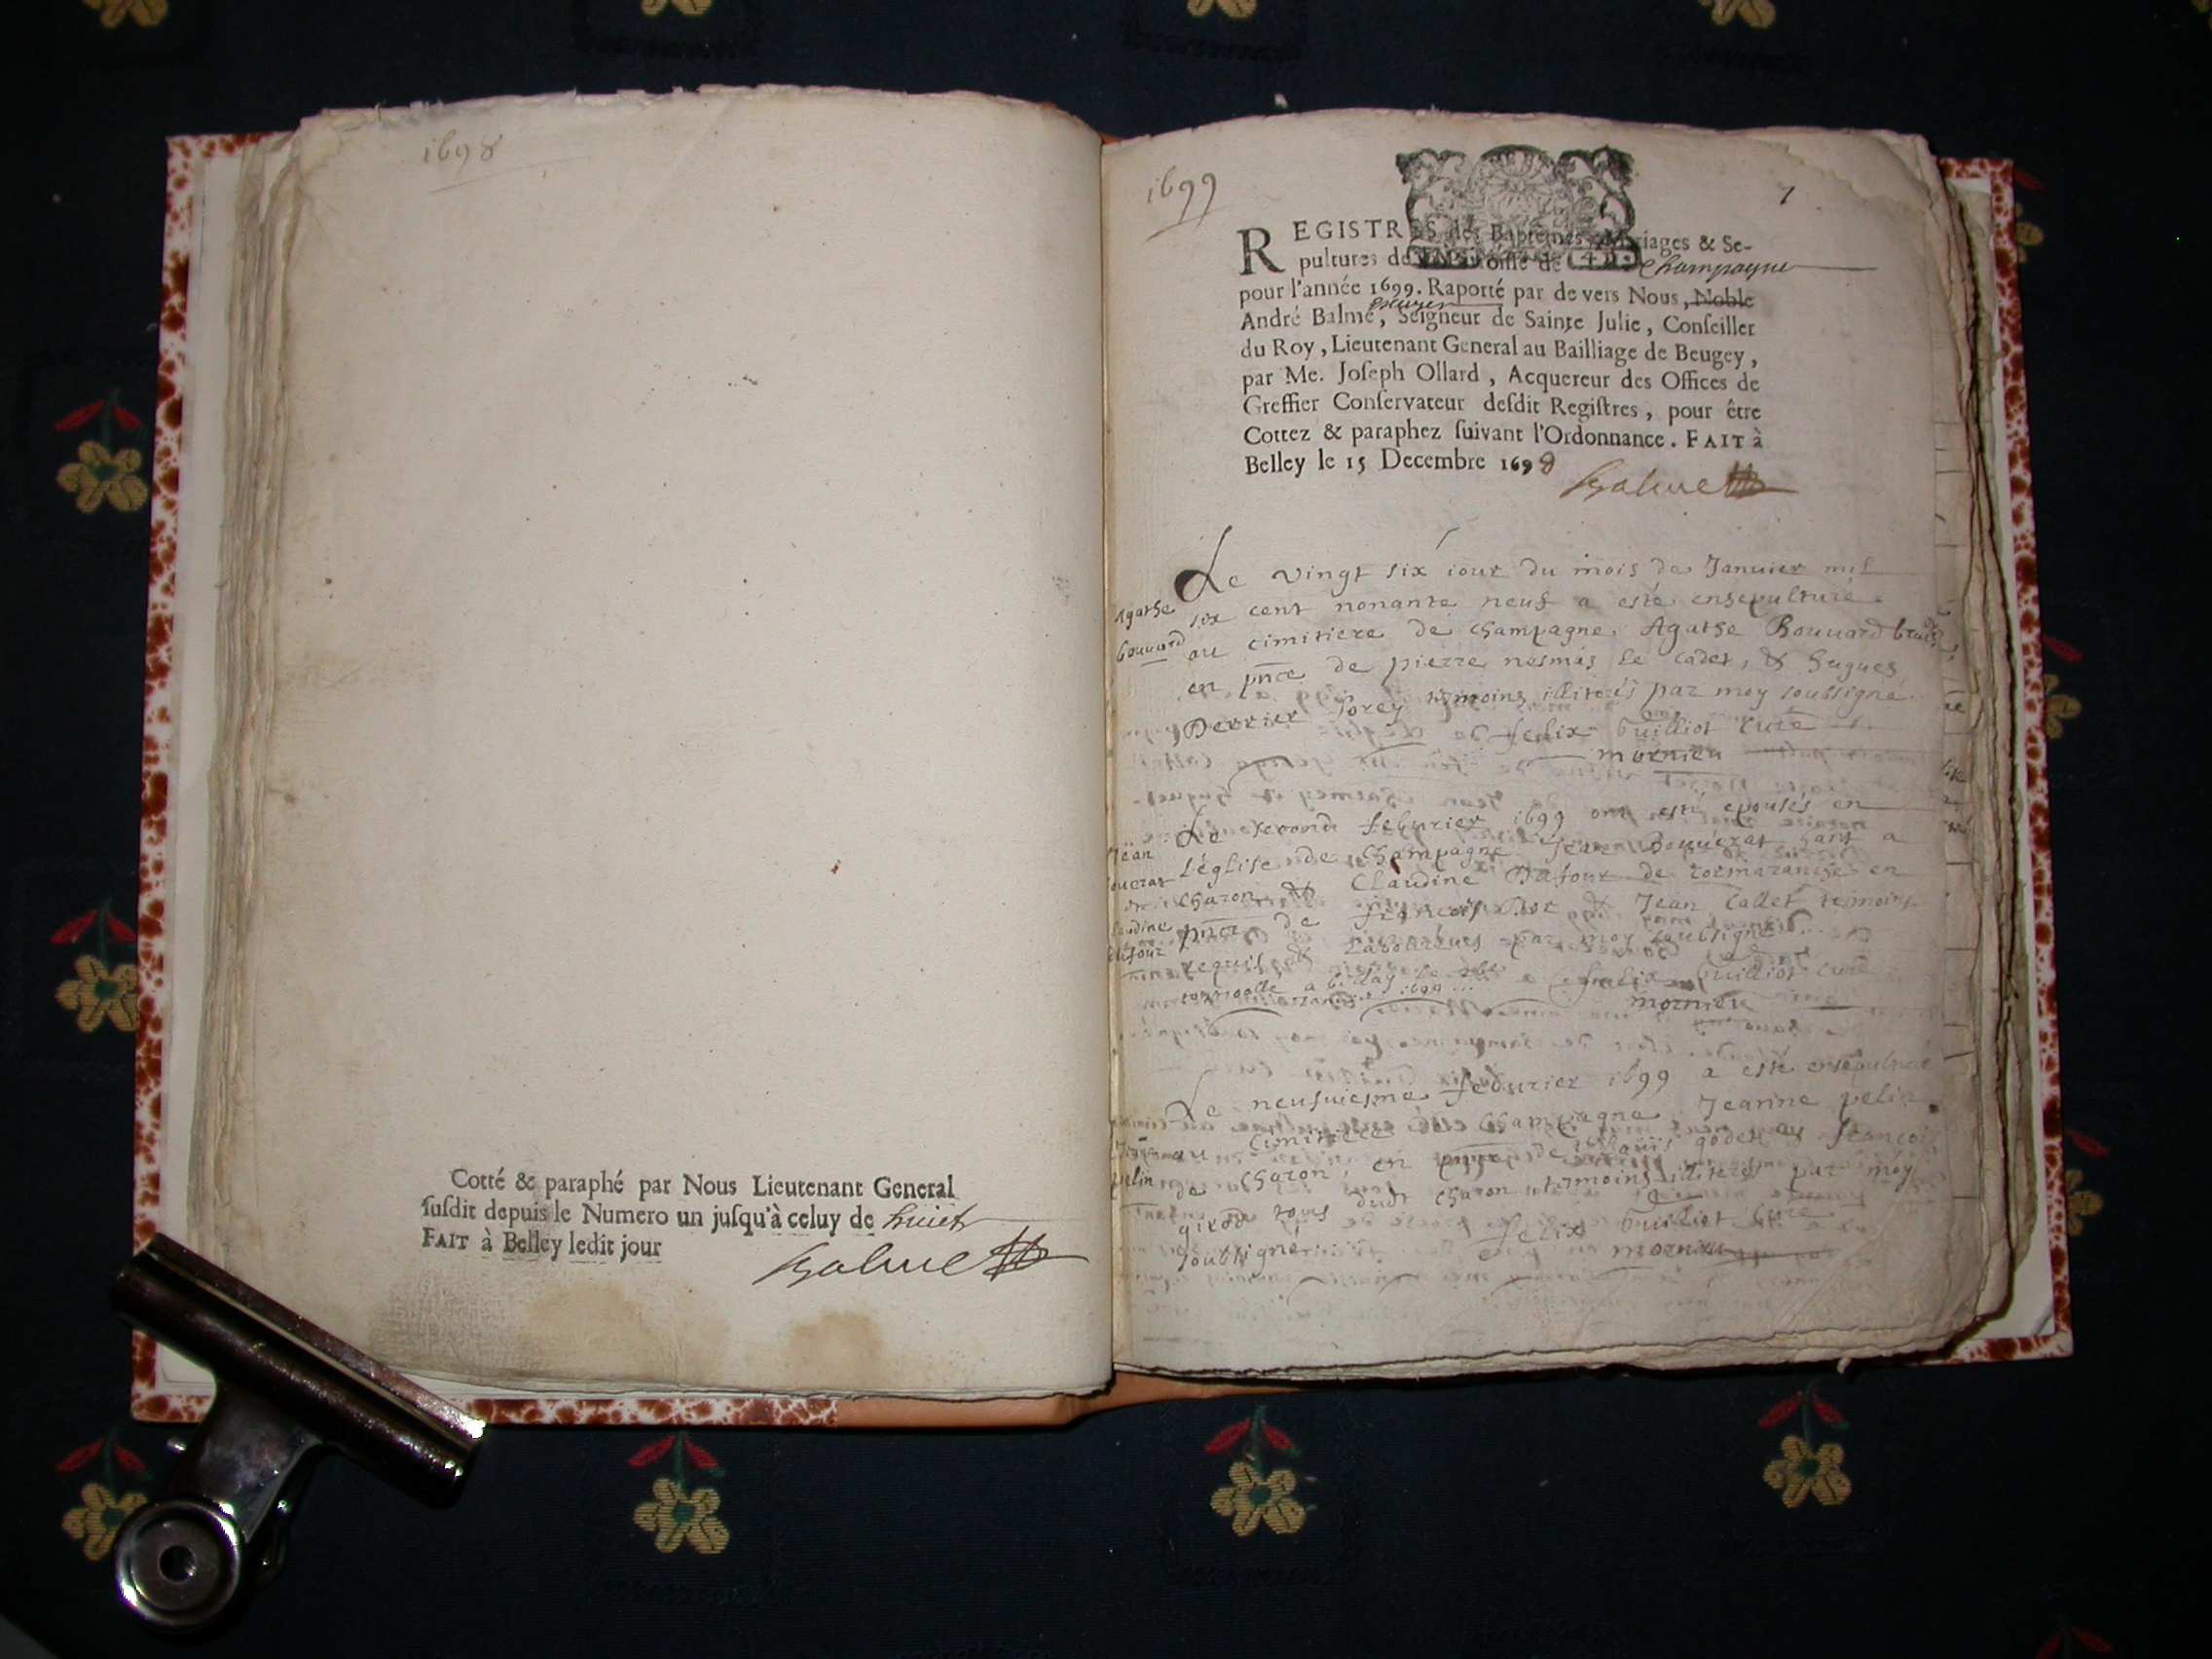 1698
Cotté & paraphé par Nous Lieutenant General
ſuſdit depuis le Numero un juſqu'à celuy de huict
FAIT à Belley ledit jour
Balme
1699
1
REGISTRES des Baptêmes, Mariages & Se-
pultures de la Paroisse de Champagne
pour l'année 1699. Raporté par de vers Nous, Noble
André Balme, escuyer Seigneur de Sainte Julie, Conſeiller
du Roy, Lieutenant General au Bailliage de Beugey,
par Me. Joſeph Ollard, Acquereur des Offices de
Greffier Conſervateur deſdit Regiſtres, pour être
Cottez & paraphez ſuivant l'Ordonnance. FAIT à
Belley le 15 Decembre 1698
Balme
Agathe
bouuard
Le vingt six iour du mois de Januier mil
six cent nonante neuf a esté ensepulturé
au cimitiere de champagne Agathe Bouuard
en pnce de pierre nesmas le cadet, & hugues
Derrier Sorey temoins illiterés par moy soubsigné
felix builliot curé
mornieu
Jean
claudine
Le second feburier 1699 ont esté epousés en
l'église de Champagne Jean Bouuerat hant a
charon & Claudine Dufour de en
pnce de françois & Jean Callet temoins
requis, & Laboureurs par moy soubsigné
a le 1699
felix builliot curé
mornieu
pelin
Le neufuiesme feburier 1699 a esté ensepulturé
au cimitiere de Champagne Jeanne pelin
de charon, en pnce de godet & françois
girod tous dudt charon temoins illiterés par moy
soubsigné
felix builliot curé
mornieu